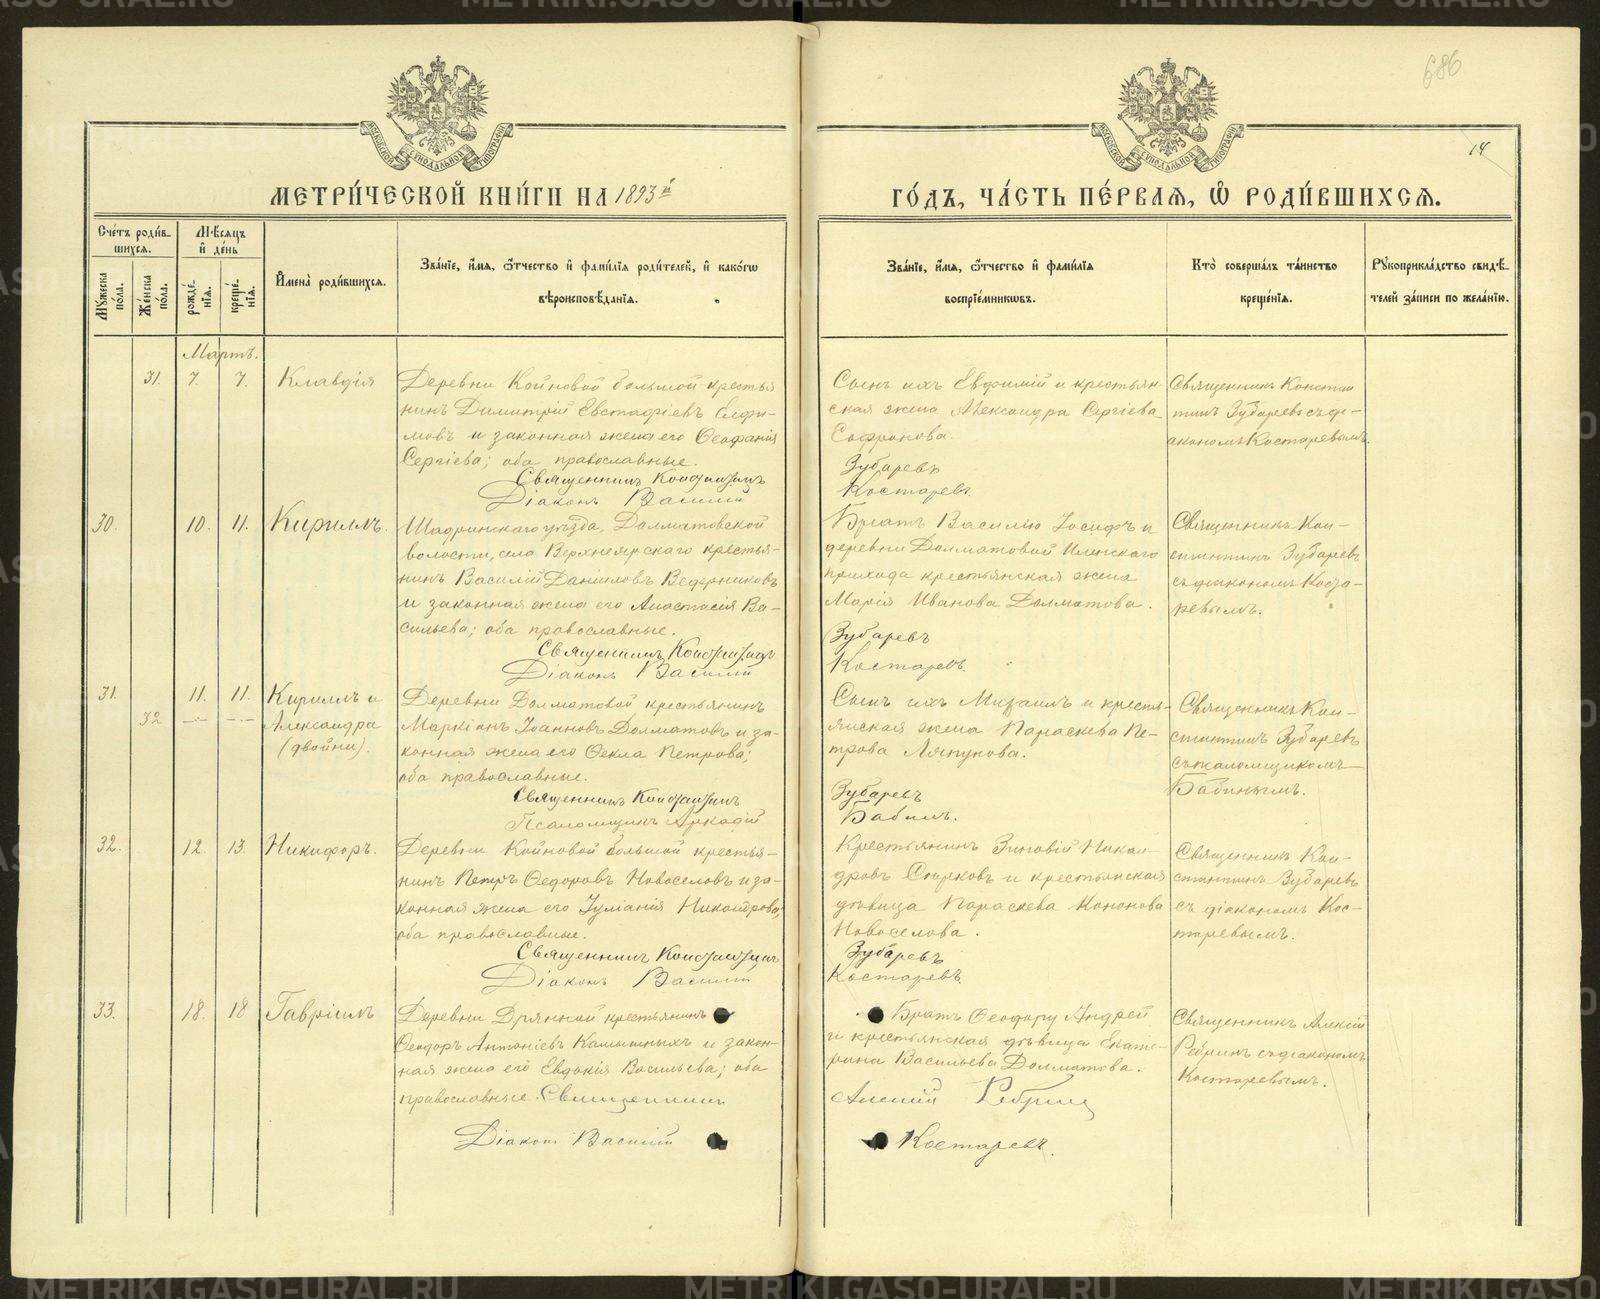 686
14
МОСКОВСКОЙ СѴНОДАЛЬНОЙ ТИПОГРАФІИ
МОСКОВСКОЙ СѴНОДАЛЬНОЙ ТИПОГРАФІИ
МЕТРИ́ЧЕСКОЙ КНИ́ГИ НА 1893й
ГО́ДЪ, ЧА́СТЬ ПЕ́РВАЯ, Ѡ҆ РОДИ́ВШИХСЯ.
Сче́тъ роди́в-
шихся.
Мꙋ́жеска по́ла.
Же́нска по́ла.
Мѣ́сяцъ
и҆ де́нь
рожде́-
нїя.
креще́-
нїя.
И҆мена̀ роди́вшихся.
Зва́нїе, и҆́мя, ѻ҆́тчество и҆ фами́лїя роди́телей, и҆ како́гѡ
вѣроисповѣ́данїя.
Зва́нїе, и҆́мя, ѻ҆́тчество и҆ фами́лїя
воспрїе́мникѡвъ.
Кто̀ соверша́лъ та́инство
креще́нїя.
Рꙋкоприкла́дство свидѣ́-
телей за́писи по жела́нїю.
Мартъ.
31. 7. 7. Клавдія
Деревни Койновой большой кресть-
янинъ Димитрій Евстафіевъ Елфи-
мовъ и законная жена его Ѳеофанія
Сергіева; оба православные.
Священникъ Константинъ
Діаконъ Василій
Сынъ ихъ Евфимій и крестьян-
ская жена Александра Сергіева
Софронова.
Зубаревъ
Костаревъ
Священникъ Констан-
тинъ Зубаревъ съ ді-
акономъ Костаревымъ.
30. 10. 11. Кириллъ.
Шадринскаго уѣзда, Долматовской
волости, села Верхнеярскаго крестья-
нинъ Василій Даніиловъ Ведерниковъ
и законная жена его Анастасія Ва-
сильева; оба православные.
Священникъ Константинъ
Діаконъ Василій
Братъ Василію Іосифъ и
деревни Долматовой Илинскаго
прихода крестьянская жена
Марія Иванова Долматова.
Зубаревъ
Костаревъ.
Священникъ Кон-
стантинъ Зубаревъ
съ діакономъ Коста-
ревымъ.
31. 11. 11. Кириллъ и
32 —"— —"— Александра
(двойни).
Деревни Долматовой крестьянинъ
Маркіанъ Іоанновъ Долматовъ и за-
конная жена его Ѳекла Петрова;
оба православные.
Священникъ Константинъ
Псаломщикъ Аркадій
Сынъ ихъ Михаилъ и кресть-
янская жена Параскева Пе-
трова Ляпунова.
Зубаревъ
Бабинъ.
Священникъ Кон-
стантинъ Зубаревъ
съ псаломщикомъ
Бабинымъ.
32. 12. 13. Никифоръ.
Деревни Койновой большой крестья-
нинъ Петръ Ѳедоровъ Новоселовъ и за-
конная жена его Іуліанія Никандрова;
оба православные.
Священникъ Константинъ
Діаконъ Василій
Крестьянинъ Зиновій Никан-
дровъ Сырковъ и крестьянская
дѣвица Параскева Кононова
Новоселова.
Зубаревъ
Костаревъ.
Священникъ Кон-
стантинъ Зубаревъ
съ діакономъ Кос-
таревымъ.
33. 18. 18 Гавріилъ
Деревни Дрянной крестьянинъ
Ѳеодоръ Антоніевъ Камышныхъ и закон-
ная жена его Евдокія Васильева; оба
православные. Священникъ
Діаконъ Василій
Братъ Ѳеодору Андрей
и крестьянская дѣвица Екате-
рина Васильева Долматова.
Алексій Ребринъ
Костаревъ.
Священникъ Алексій
Ребринъ съ діакономъ
Костаревымъ.
METRIKI.GASO-URAL.RU